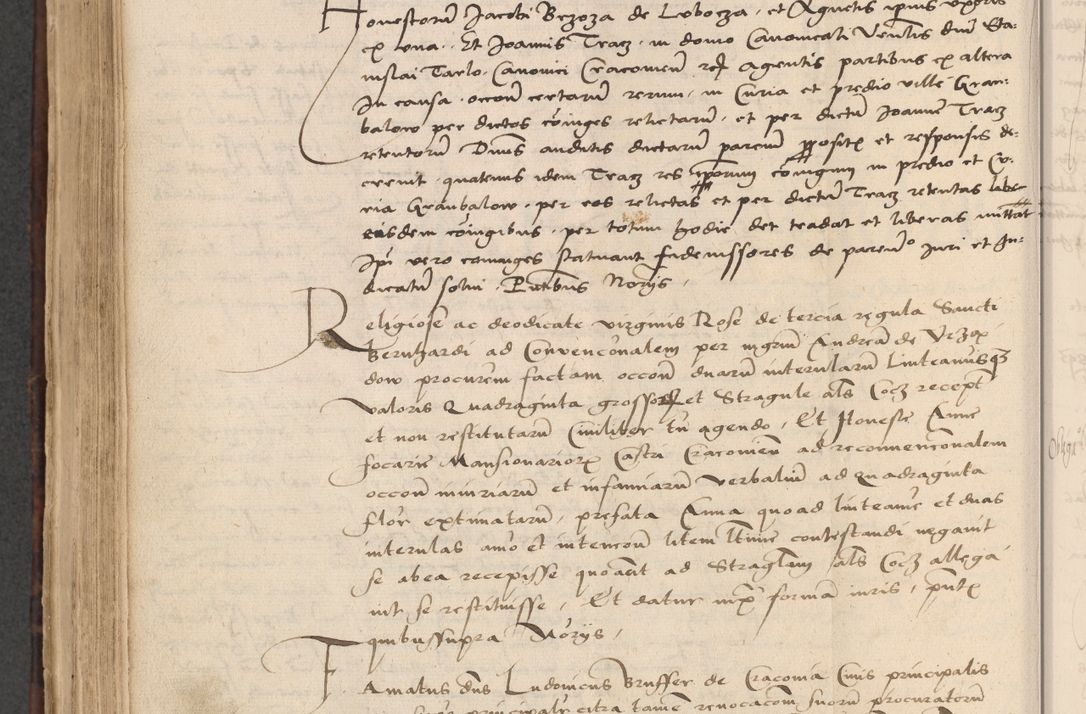 Honestorum Jacobi Brzoza de Lobocza, et Agnetis ipius vxoris
ex vna. Et Joannis Tracz in domo Canonicali Venlis dni Sta-
nislai Tarlo Canonici Cracouien agentis partibus ex altera
In causa occon certarum rerum, in Curia et predio ville Gran-
balow per dictos coniuges relictarum, et per dictum Joannem Tracz
retentorum Dnus auditis dictarum parcium propositis et responsis de-
creuit quatenus idem Tracz res iporum coniugum in predio et Cu-
ria Granbalow per eos relictas et per dictum Tracz retentas libe
eisdem coniugibus, per totum hodie det tradat et liberas mittat
Ipi vero coniuges statuant fideiussores de parendo Juri et Iu-
dicatum solui. Pntibus Norijs,
Religiose ac deodicate virginis Rose de tercia regula Sancti
Bernhardi ad Conuenconalem per mgrum Andream de
dow procurem factam occon duarum interularum Linteaminisque
valoris Quadraginta grossorum et Stragule als Cocz recept
et non restitutarum Ciuiliter tn agendo, Et Honeste Anne
focarie Mansionariorum Castri Cracouien ad reconuenconalem
occon iniuriarum et infamiarum verbalium ad quadraginta
flor extimatarum, prefata Anna quoad linteamen et duas
interulas animo et intencon litem ltime contestandi negauit
se abea recepisse quoad ad Stragulam als Cocz allega
uit se restituisse, Et datur in forma iuris, pntibus
quibussupra Norijs,
Famatus dns Ludouicus Brusser de Cracouia Ciuis principalis
principalr citra tamen reuocacom suorum procuratorum